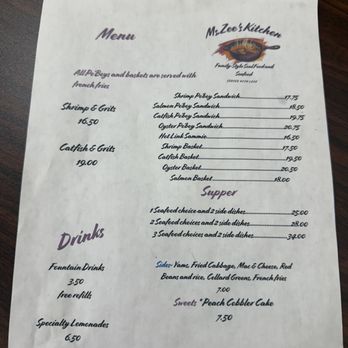 Menu
Ms Zee's Kitchen
Family Style Soul Food and
Seafood
SERVED WITH LOVE
All Po'Boys and baskets are served with
french fries
Shrimp & Grits
16.50
Catfish & Grits
19.00
Shrimp Poboy Sandwich 17.75
Salmon Poboy Sandwich 18.50
Catfish Poboy Sandwich 19.75
Oyster Poboy Sandwich 20.75
Hot Link Sammie 16.50
Shrimp Basket 17.50
Catfish Basket 19.50
Oyster Basket 20.50
Salmon Basket 18.00
Supper
1 Seafood choice and 2 side dishes 25.00
2 Seafood choices and 2 side dishes 28.00
3 Seafood choices and 2 side dishes 34.00
Drinks
Fountain Drinks
3.50
free refills
Specialty Lemonades
6.50
Sides- Yams, Fried Cabbage, Mac & Cheese, Red
Beans and rice, Collard Greens, French fries
7.00
Sweets *Peach Cobbler Cake
7.50